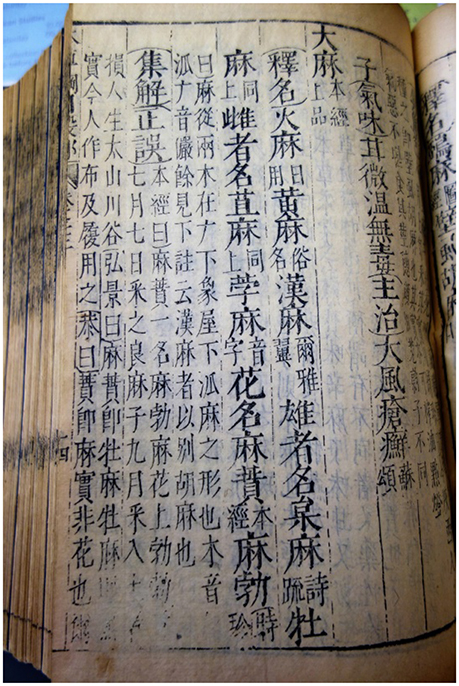 子氣味甘微溫無毒主治大風瘡癬頌
大麻本經上品
釋名火麻日用黃麻俗名漢麻爾雅翼雄者名枲麻詩疏牡
麻同上雌者名苴麻同上茡麻音字花名麻蕡本經麻勃時珍
曰麻從兩木在广下象屋下𣏟麻之形也木音
𣏟广音儼餘見下註云漢麻者以別胡麻也
集解正誤本經曰麻蕡一名麻勃麻花上勃勃
七月七日采之良麻子九月采入土
損人生太山川谷弘景曰麻蕡卽牡麻牡麻
實今人作布及履用之恭曰蕡卽麻實非花也